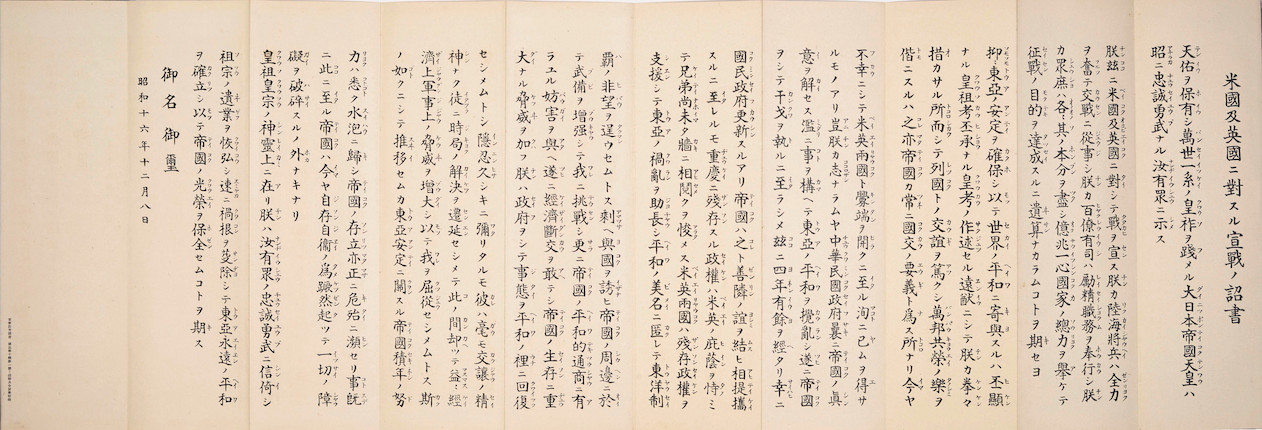 米國及英國ニ對スル宣戰ノ詔書
天佑ヲ保有シ萬世一系ノ皇祚ヲ踐メル大日本帝國天皇ハ
昭ニ忠誠勇武ナル汝有眾ニ示ス
朕茲ニ米國及英國ニ對シテ戰ヲ宣ス朕カ陸海將兵ハ全力
ヲ奮テ交戰ニ從事シ朕カ百僚有司ハ勵精職務ヲ奉行シ朕
カ眾庶ハ各〻其ノ本分ヲ盡シ億兆一心國家ノ總力ヲ擧ケテ
征戰ノ目的ヲ達成スルニ遺算ナカラムコトヲ期セヨ
抑〻東亞ノ安定ヲ確保シ以テ世界ノ平和ニ寄與スルハ丕顯
ナル皇祖考丕承ナル皇考ノ作述セル遠猷ニシテ朕カ拳々
措カサル所而シテ列國トノ交誼ヲ篤クシ萬邦共榮ノ樂ヲ
偕ニスルハ之亦帝國カ常ニ國交ノ要義ト爲ス所ナリ今ヤ
不幸ニシテ米英兩國ト釁端ヲ開クニ至ル洵ニ已ムヲ得サ
ルモノアリ豈朕カ志ナラムヤ中華民國政府曩ニ帝國ノ眞
意ヲ解セス濫ニ事ヲ構ヘテ東亞ノ平和ヲ攪亂シ遂ニ帝國
ヲシテ干戈ヲ執ルニ至ラシメ茲ニ四年有餘ヲ經タリ幸ニ
國民政府更新スルアリ帝國ハ之ト善隣ノ誼ヲ結ヒ相提攜
スルニ至レルモ重慶ニ殘存スル政權ハ米英ノ庇蔭ヲ恃ミ
テ兄弟尚未タ牆ニ相鬩クヲ悛メス米英兩國ハ殘存政權ヲ
支援シテ東亞ノ禍亂ヲ助長シ平和ノ美名ニ匿レテ東洋制
覇ノ非望ヲ逞ウセムトス剩ヘ與國ヲ誘ヒ帝國ノ周邊ニ於
テ武備ヲ增强シテ我ニ挑戰シ更ニ帝國ノ平和的通商ニ有
ラユル妨害ヲ與ヘ遂ニ經濟斷交ヲ敢テシ帝國ノ生存ニ重
大ナル脅威ヲ加フ朕ハ政府ヲシテ事態ヲ平和ノ裡ニ回復
セシメムトシ隱忍久シキニ彌リタルモ彼ハ毫モ交讓ノ精
神ナク徒ニ時局ノ解決ヲ遷延セシメテ此ノ間却ツテ益〻經
濟上軍事上ノ脅威ヲ增大シ以テ我ヲ屈從セシメムトス斯
ノ如クニシテ推移セムカ東亞安定ニ關スル帝國積年ノ努
力ハ悉ク水泡ニ歸シ帝國ノ存立亦正ニ危殆ニ瀕セリ事既
ニ此ニ至ル帝國ハ今ヤ自存自衞ノ爲蹶然起ツテ一切ノ障
礙ヲ破碎スルノ外ナキナリ
皇祖皇宗ノ神靈上ニ在リ朕ハ汝有眾ノ忠誠勇武ニ信倚シ
祖宗ノ遺業ヲ恢弘シ速ニ禍根ヲ芟除シテ東亞永遠ノ平和
ヲ確立シ以テ帝國ノ光榮ヲ保全セムコトヲ期ス
御名御璽
昭和十六年十二月八日